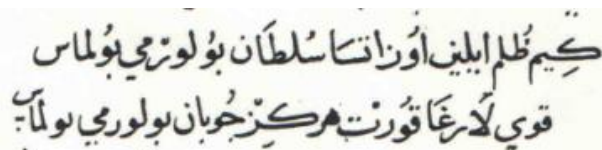 كِيم ظُلم ايلين اُوزاتسَا سُلطَان بوُلورمي بُولماس
قوي لَارغَا قوُرت هركز جُوبان بولورمي بولماس